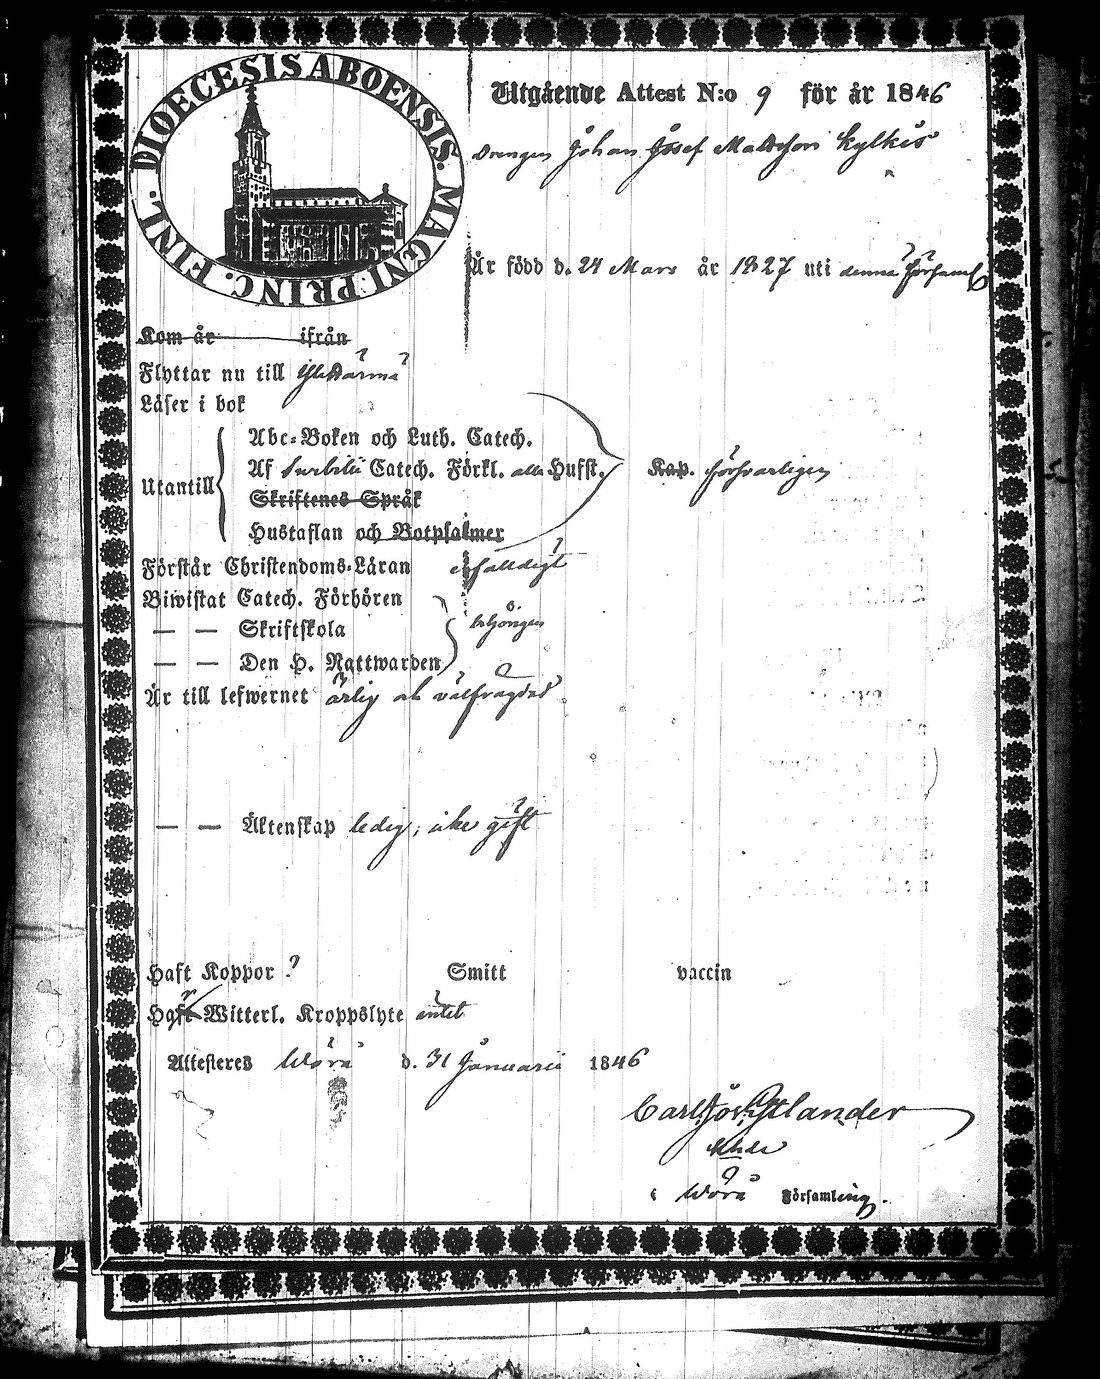 DIOECESIS ABOENSIS. MAGNI PRINC. FINL.
Utgående Attest N:o 9 för år 1846
Drengen Johan Josef Mattsson Kylkis
Är född d. 24 Mars år 1827 uti denna Församl
Kom år ifrån
Flyttar nu till Ylistarma
Läser i bok
Abc-Boken och Luth. Catech.
Utantill Af Svebilii Catech. Förkl. alla Hufst. Kap. försvarligen
Skriftenes Språk
Hustaflan och Botpsalmer
Förstår Christendoms-Läran enfalldigt
Biwistat Catech. Förhören
— — Skriftskola behörigen
— — Den H. Nattwarden
Är till lefwernet ärlig och välfrägdad
— — Äktenskap ledig, icke gift
Haft Koppor ? Smitt vaccin
Haft Witterl. Kroppslyte intet
Attesteres Wörå d. 31 Januarii 1846
Carl
i Wörå Församling.